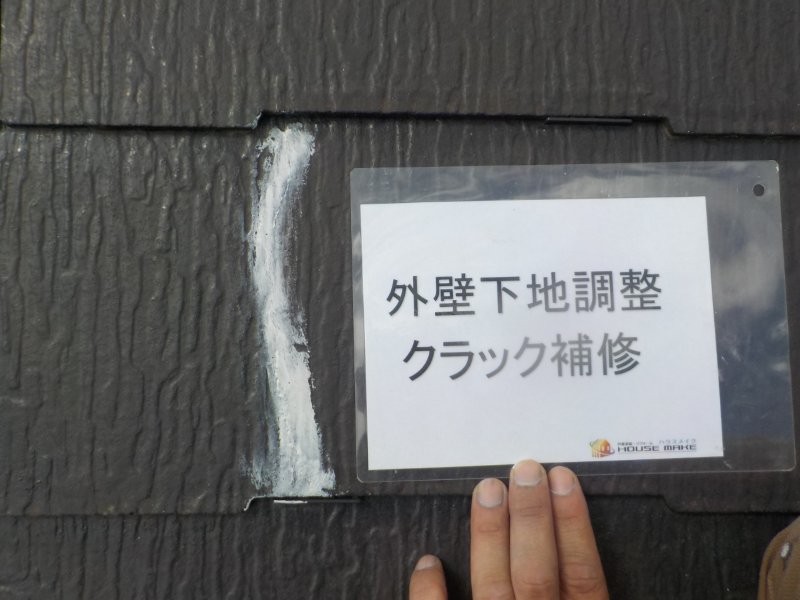 外壁下地調整
クラック補修
ハウスメイク
HOUSE MAKE